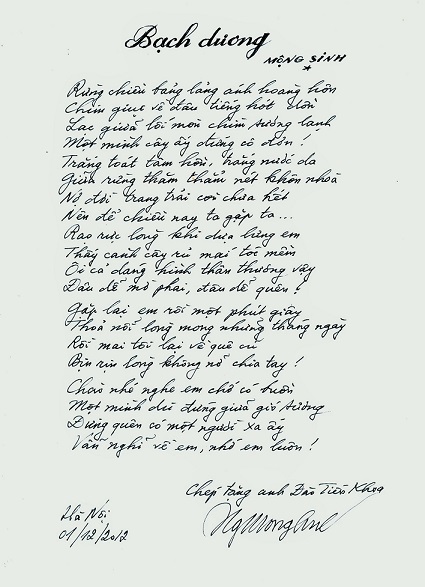 Bạch dương
MỘNG SINH
Rừng chiều bảng lảng ánh hoàng hôn
Chim giục về đâu tiếng hót dồn
Lạc giữa lối mòn chìm sương lạnh
Một mình cây ấy đứng cô đơn!
Trắng toát tâm hồn, trắng nước da
Giữa rừng thăm thẳm nét khôn nhoà
Nợ đời trang trải còn chưa hết
Nên để chiều nay ta gặp ta...
Rạo rực lòng khi dựa lưng em
Thấy cành cây rủ mái tóc mềm
Ôi cả dáng hình thân thương vậy
Dẫu dễ mờ phai, đâu dễ quên!
Gặp lại em rồi một phút giây
Thoả nỗi lòng mong những tháng ngày
Rồi mai tôi lại về quê cũ
Bịn rịn lòng không nỡ chia tay!
Chào nhé nghe em chớ có buồn
Một mình dù đứng giữa gió sương
Đừng quên có một người xa ấy
Vẫn nghĩ về em, nhớ em luôn!
Chép tặng anh Đào Tiến Khoa
Hà Nội
01/12/2012